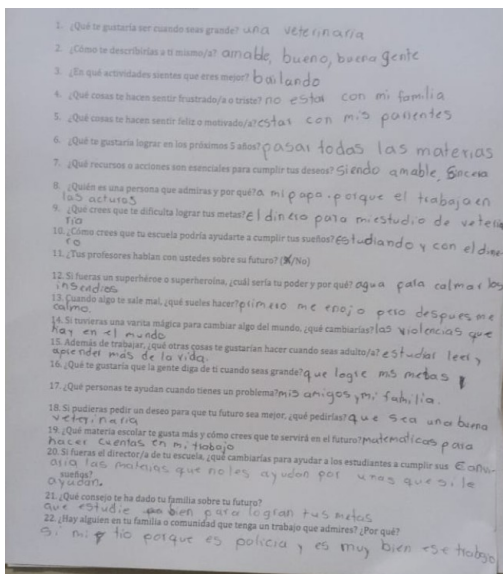 1. ¿Qué te gustaría ser cuando seas grande? una veterinaria
2. ¿Cómo te describirías a ti mismo/a? amable, bueno, buena gente
3. ¿En qué actividades sientes que eres mejor? bailando
4. ¿Qué cosas te hacen sentir frustrado/a o triste? no estar con mi familia
5. ¿Qué cosas te hacen sentir feliz o motivado/a? estar con mis parientes
6. ¿Qué te gustaría lograr en los próximos 5 años? pasar todas las materias
7. ¿Qué recursos o acciones son esenciales para cumplir tus deseos? siendo amable, sincera
8. ¿Quién es una persona que admiras y por qué? a mi papa. porque el trabaja en
las acturas
9. ¿Qué crees que te dificulta lograr tus metas? el dinero para mi estudio de veteri
ria
10. ¿Cómo crees que tu escuela podría ayudarte a cumplir tus sueños? estudiando y con el dine
ro
11. ¿Tus profesores hablan con ustedes sobre su futuro? (X/No)
12. Si fueras un superhéroe o superheroína, ¿cuál sería tu poder y por qué? agua para calmar los
insendios
13. Cuando algo te sale mal, ¿qué sueles hacer? primero me enojo pero despues me
calmo.
14. Si tuvieras una varita mágica para cambiar algo del mundo, ¿qué cambiarías? las violencias que
hay en el mundo
15. Además de trabajar, ¿qué otras cosas te gustarían hacer cuando seas adulto/a? estudiar leer y
aprender más de la vida.
16. ¿Qué te gustaría que la gente diga de ti cuando seas grande? que logre mis metas
17. ¿Qué personas te ayudan cuando tienes un problema? mis amigos y mi familia.
18. Si pudieras pedir un deseo para que tu futuro sea mejor, ¿qué pedirías? que sea una buena
veterinaria
19. ¿Qué materia escolar te gusta más y cómo crees que te servirá en el futuro? matematicas para
hacer cuentas en mi trabajo
20. Si fueras el director/a de tu escuela, ¿qué cambiarías para ayudar a los estudiantes a cumplir sus
aria las materias que no les ayudan por unas que si le
sueños?
ayudan.
21. ¿Qué consejo te ha dado tu familia sobre tu futuro?
que estudie bien para logran tus metas
22. ¿Hay alguien en tu familia o comunidad que tenga un trabajo que admires? ¿Por qué?
si mi tio porque es policia y es muy bien ese trabajo